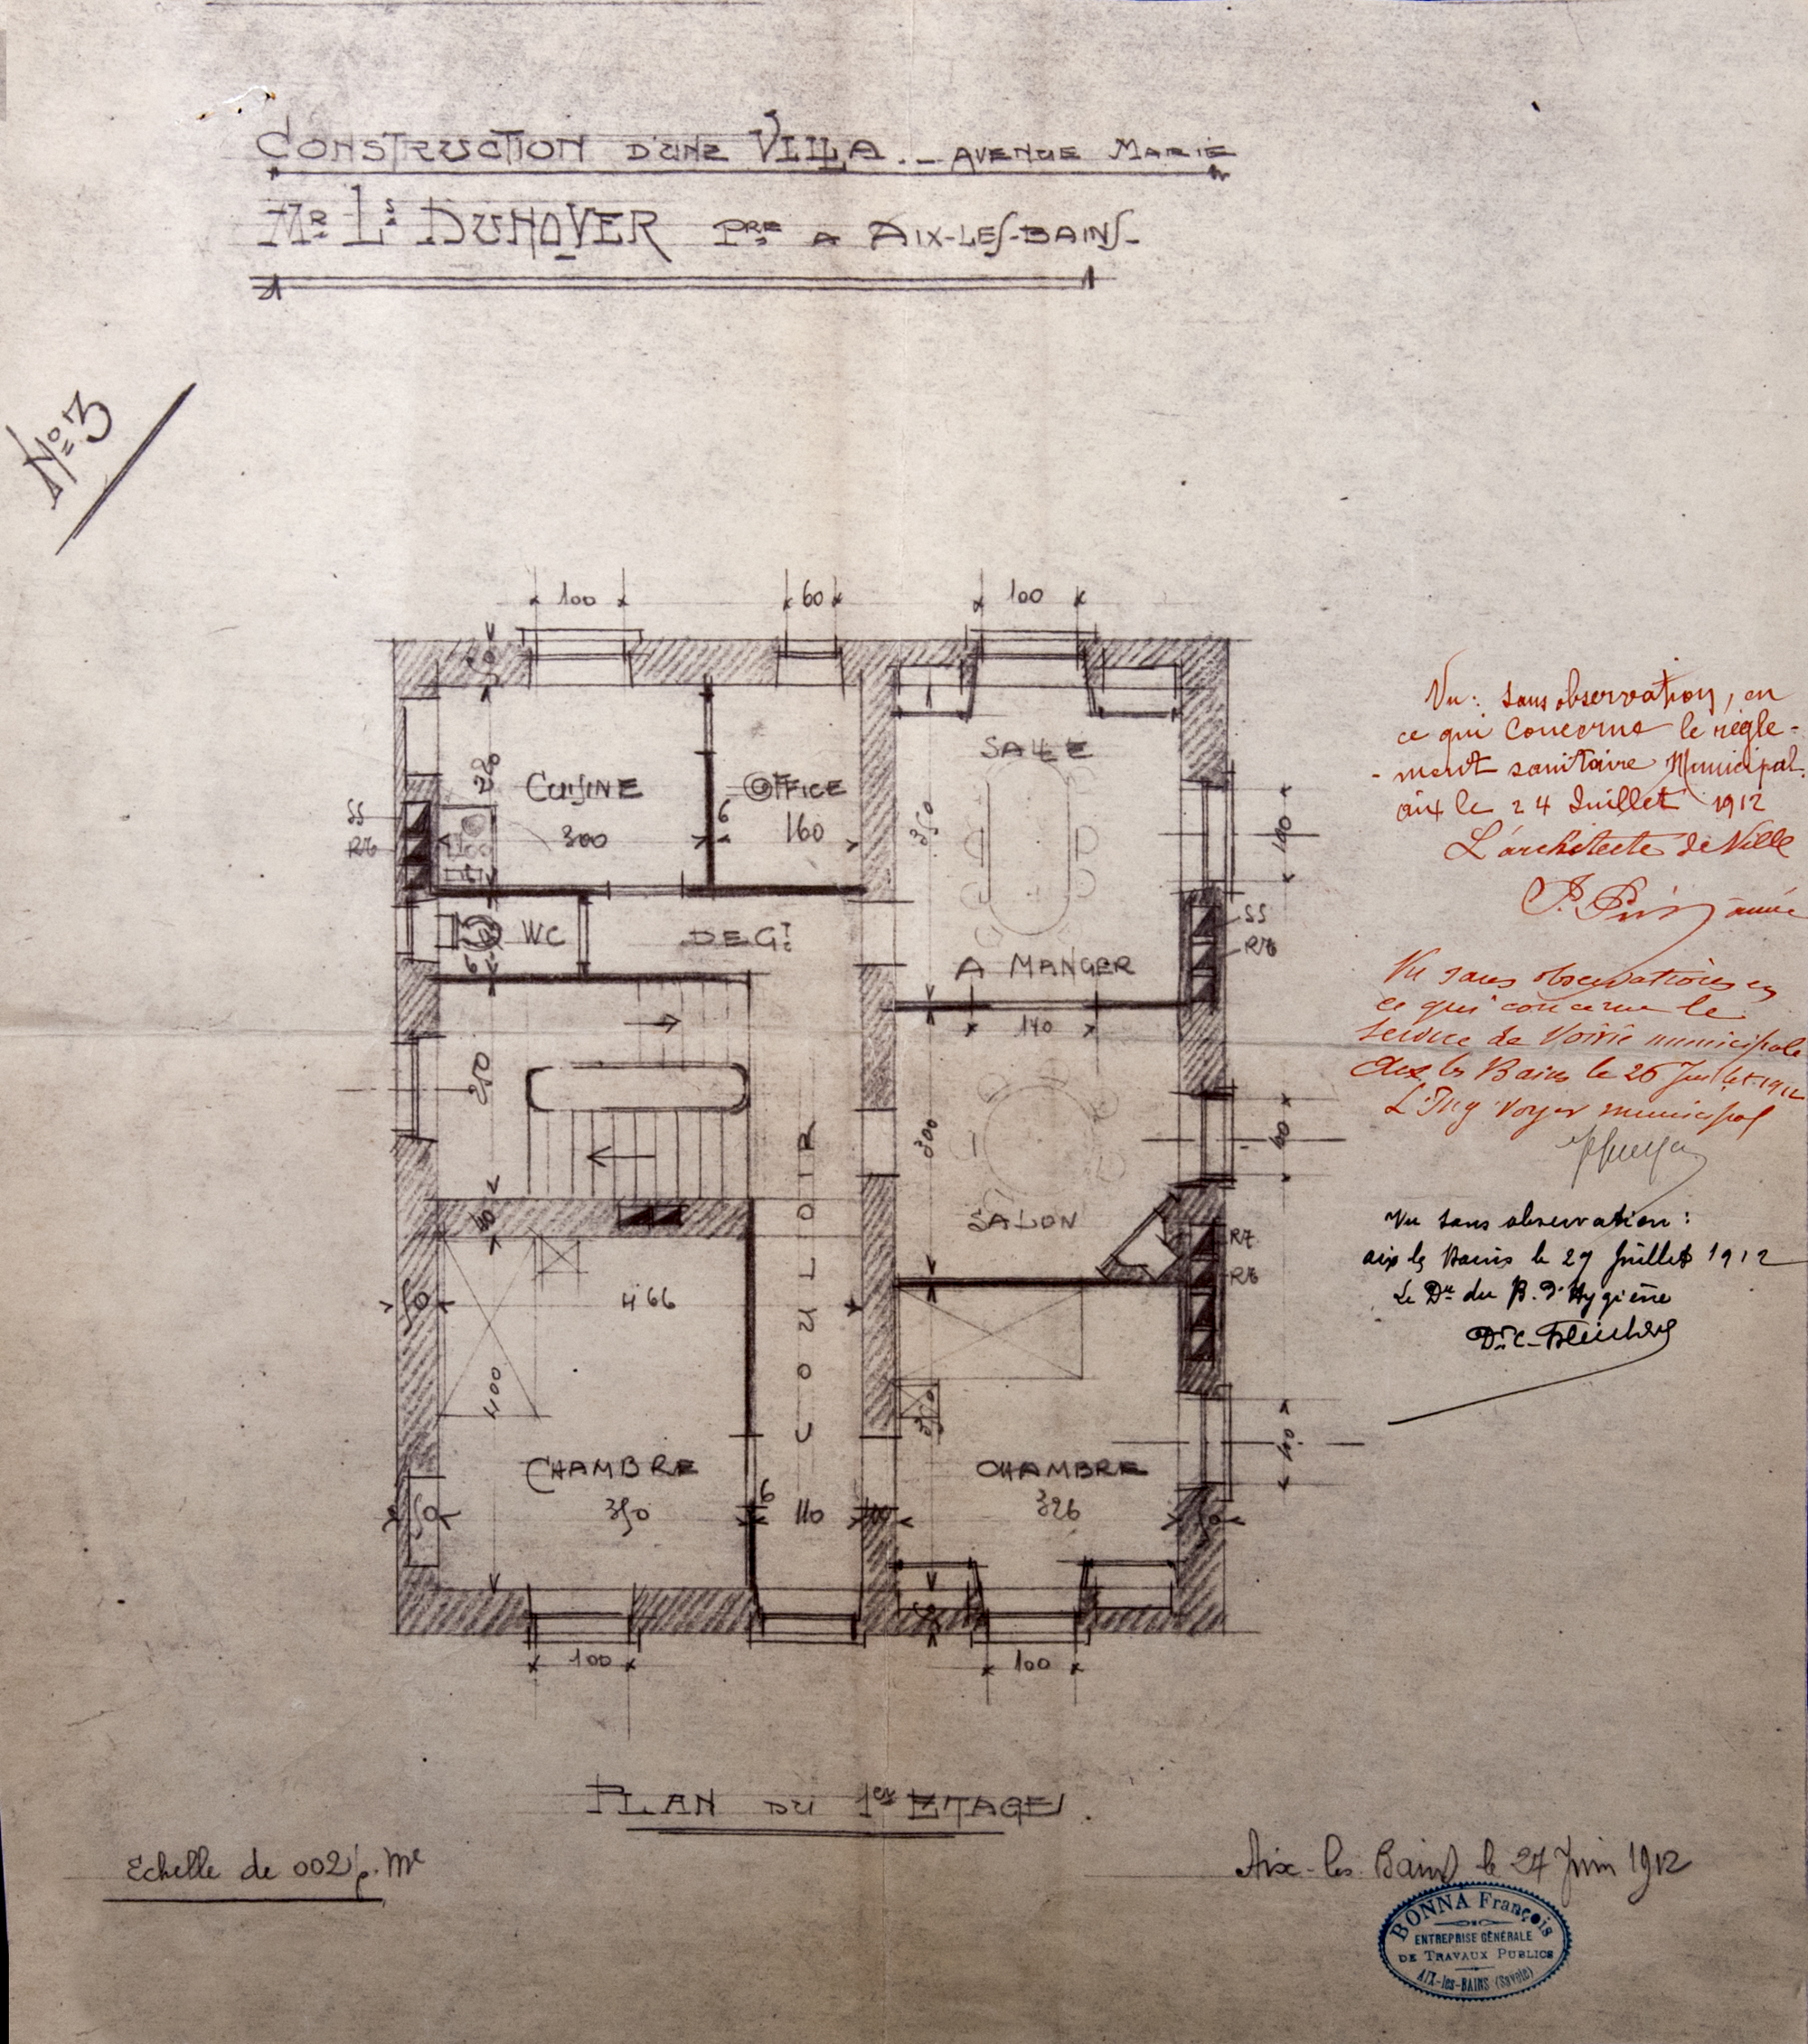 CONSTRUCTION D'UNE VILLA._ AVENUE MARIE
MR LS DUNOYER PRE A AIX-LES-BAINS_
No 3
100 60 100
50
CUISINE
OFFICE
SALLE
280
300
6
160
350
100
SS
R6
WC
DEGT
A MANGER
SS
R6
140
250
300
COULOIR
SALON
40
R7
R6
50
466
400
350
CHAMBRE
350
6
110
CHAMBRE
326
50
50
100
100
PLAN DU 1er ETAGE.
Echelle de 002 p. Me
Vu: sans observation, en
ce qui concerne le règle-
-ment sanitaire Municipal.
aix le 24 Juillet 1912
L'architecte de Ville
Vu sans observations en
ce qui concerne le
service de Voirie municipale
Aix les Bains le 26 Juillet 1912
L'Ing Voyer municipal
Vu sans observation:
aix les Bains le 29 Juillet 1912
Le Dr du B. d'Hygiène
Aix-les-Bains le 24 Juin 1912
BONNA François
ENTREPRISE GÉNÉRALE
DE TRAVAUX PUBLICS
AIX-les-BAINS (Savoie)